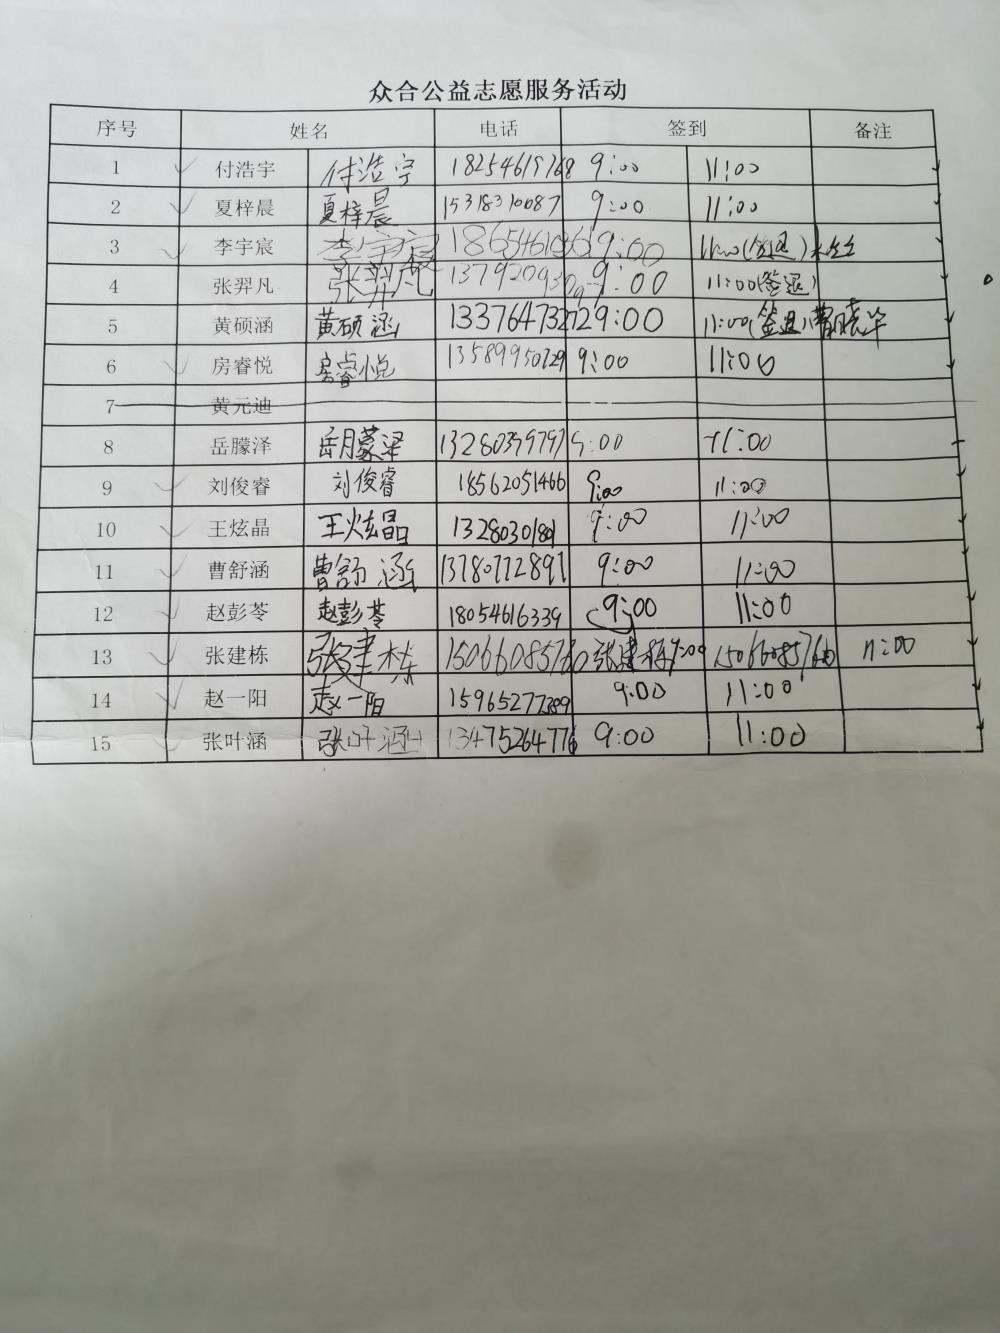 众合公益志愿服务活动
序号 姓名 电话 签到 备注
1 付浩宇 付浩宇 18254619768 9:00 11:00
2 夏梓晨 夏梓晨 15318310087 9:00 11:00
3 李宇宸 李宇宸 9:00 11:00(签退)
4 张羿凡 张羿凡 9:00 11:00(签退)
5 黄硕涵 黄硕涵 13376473272 9:00 11:00(签退) 曹晓华
6 房睿悦 房睿悦 13589950729 9:00 11:00
7 黄元迪
8 岳朦泽 岳朦泽 13280359797 9:00 11:00
9 刘俊睿 刘俊睿 18562051466 9:00 11:00
10 王炫晶 王炫晶 13280301801 9:00 11:00
11 曹舒涵 曹舒涵 13780772891 9:00 11:00
12 赵彭苓 赵彭苓 18054616339 9:00 11:00
13 张建栋 张建栋 15066085760 张建栋 9:00 15066085760 11:00
14 赵一阳 赵一阳 15965277389 9:00 11:00
15 张叶涵 张叶涵 13475264776 9:00 11:00